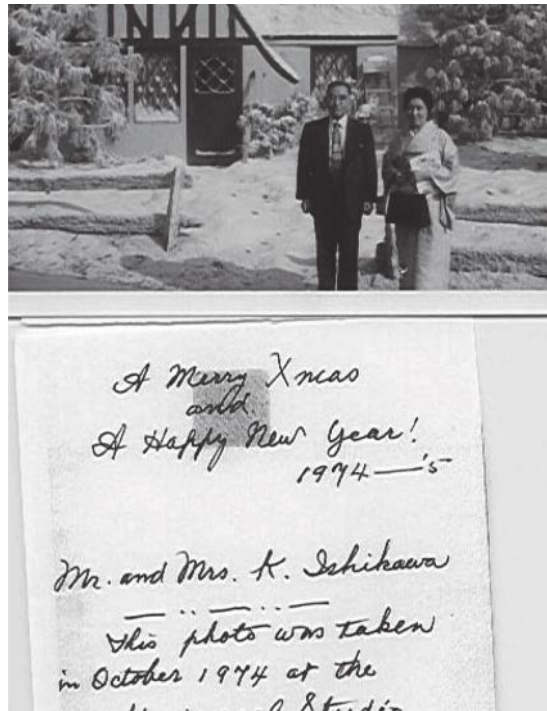 A Merry Xmas
and
A Happy New Year!
1974—'5
Mr. and Mrs. K. Ishikawa
This photo was taken
in October 1974 at the
Studio